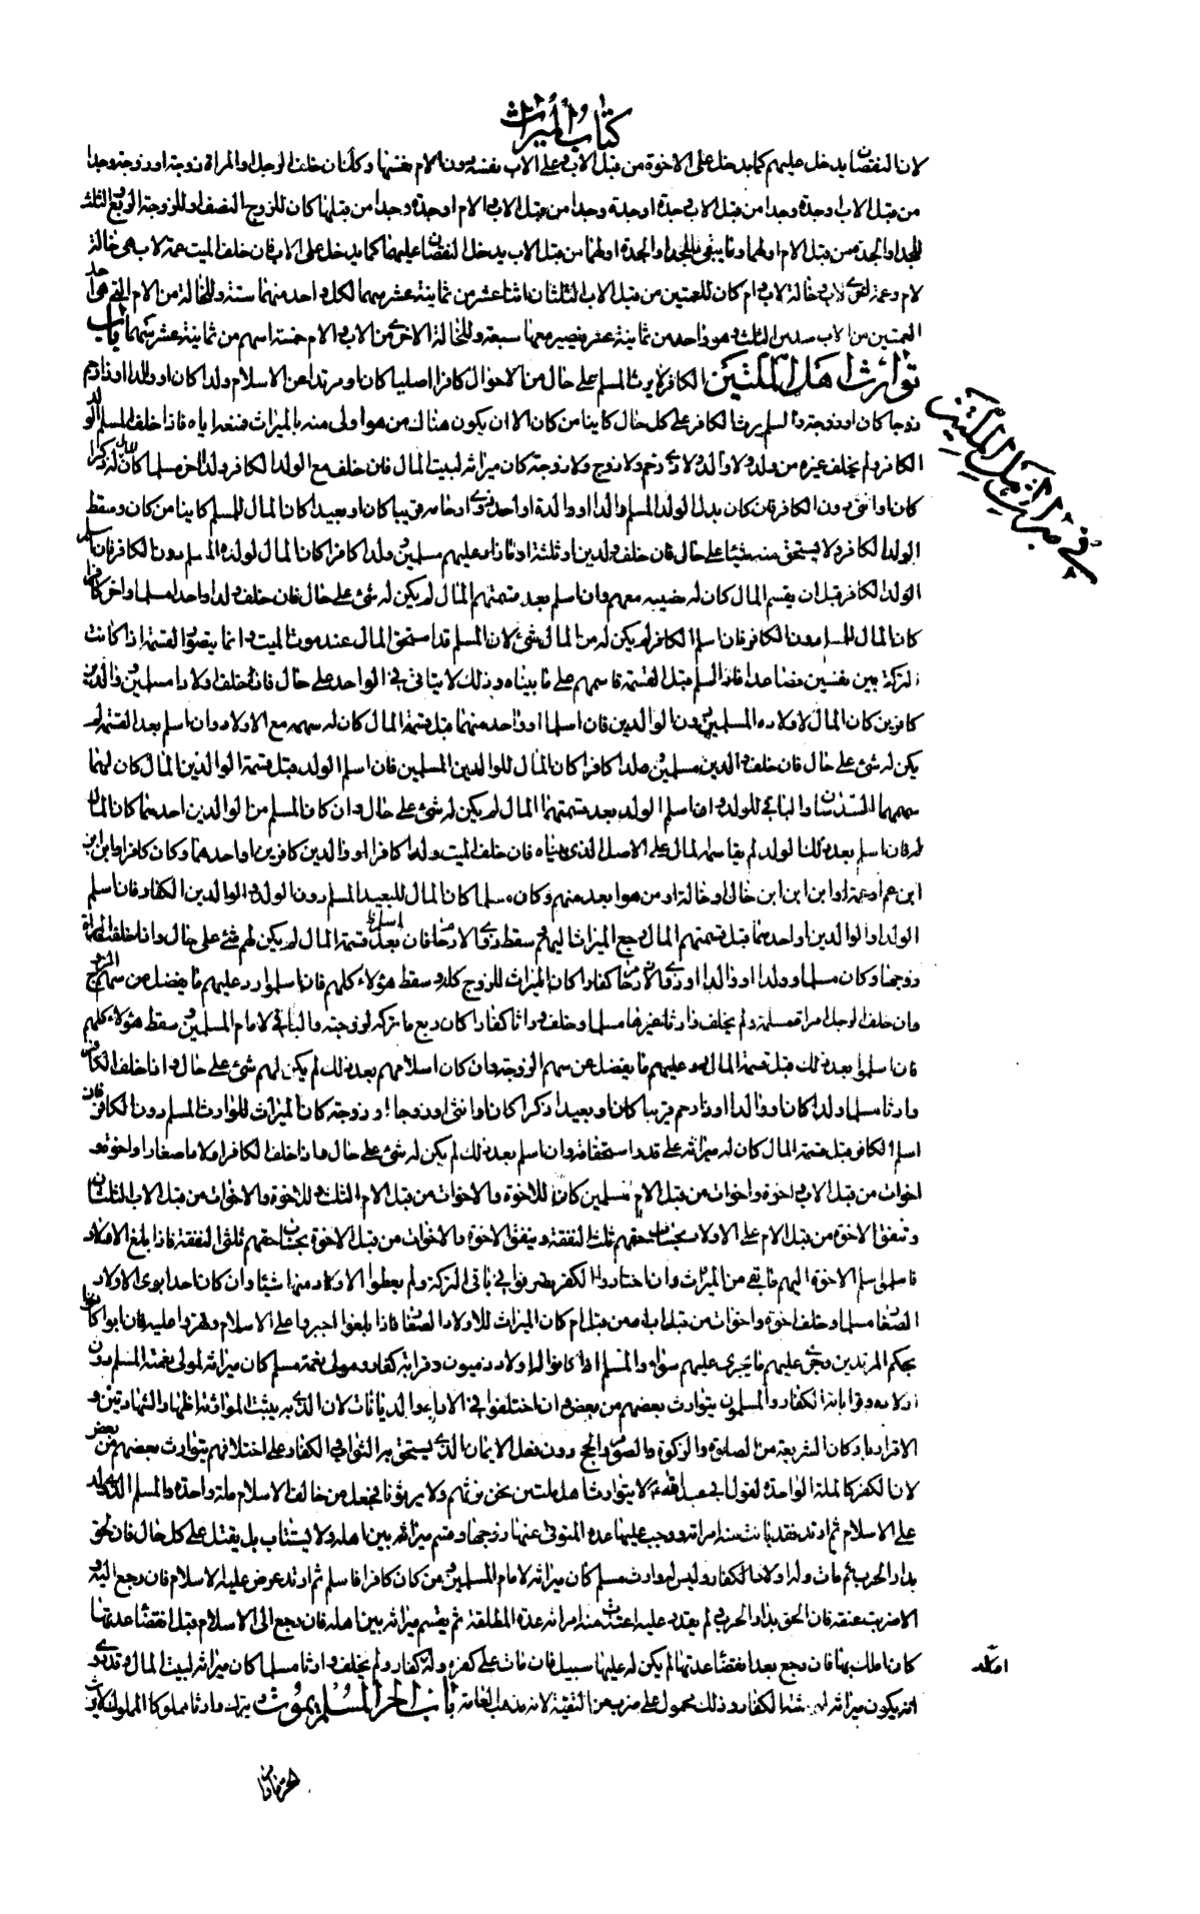 كتاب الميراث
لان النقصان يدخل عليهم كما يدخل على الاخوة من قبل الاب و على الاب نفسه دون الام بعينها وكذلك ان خلف الرجل او المراة زوجة او زوجة وجدا
من قبل الاب او جدة وجدا من قبل الاب وجدة او جدة وجدا من قبل الاب والام او جدة وجدا من قبلها كان للزوج النصف او للزوجة الربع والثلث
للجد او الجدة من قبل الام او لهما وما يبقى للجد او الجدة او لهما من قبل الاب يدخل النقصان عليهما كما يدخل على الاب فان خلف الميت عمة لاب هى خالة
لام وعمة اخرى لاب وخالة لاب وام كان للعمتين من قبل الاب الثلثان اثنا عشر من ثمانية عشر سهما لكل واحد منهما ستة وللخالة من الام التى هى احد
العمتين من الاب سدس الثلث وهو واحد من ثمانية عشر فيصير معها سبعة وللخالة الاخرى من الاب والام خمسة اسهم من ثمانية عشر سهما باب
توارث اهل الملتين الكافر لا يرث المسلم على حال من الاحوال كافرا اصليا كان او مرتدا عن الاسلام ولدا كان او والدا او ذا رحم
زوجا كان او زوجة والمسلم يرث الكافر على كل حال كاينا من كان الا ان يكون هناك من هو اولى منه بالميراث فمنعه اياه فاذا خلف المسلم الولد
الكافر ولم يخلف غيره من ولد ولا والد ولا ذى رحم ولا زوج ولا زوجة كان ميراثه لبيت المال فان خلف مع الولد الكافر ولدا اخر مسلما كان المال له ذكرا
كان او انثى دون الكافر فان كان بدل الولد المسلم والدا او والدة او احد ذوى ارحامه قريبا كان او بعيدا كان المال للمسلم كاينا من كان وسقط
الولد الكافر ولا يستحق منه شيئا على حال فان خلف ولدين او ثلثة او ما زاد عليهم مسلمين وولدا كافرا كان المال لولده المسلم دون الكافر فان اسلم
الولد الكافر قبل ان يقسم المال كان له نصيبه معهم وان اسلم بعد قسمتهم المال لم يكن له شئ على حال فان خلف ولدا واحدا مسلما واخر كافرا
كان المال للمسلم دون الكافر فان اسلم الكافر لم يكن له من المال شئ لان المسلم قد استحق المال عند موت الميت وانما يتصور القسمة اذا كانت
التركة بين نفسين فصاعدا فاذا اسلم قبل القسمة قاسمهم على ما بيناه وذلك لا يتاتى فى الواحد على حال فان خلف اولادا مسلمين ووالدين
كافرين كان المال لاولاده المسلمين دون الوالدين فان اسلما او واحد منهما قبل قسمة المال كان له سهمه مع الاولاد وان اسلم بعد القسمة لم
يكن له شئ على حال فان خلف والدين مسلمين وولدا كافرا كان المال للوالدين المسلمين فان اسلم الولد قبل قسمة الوالدين المال كان لهما
سهمهما السدسان والباقى للولد وان اسلم الولد بعد قسمتهما المال لم يكن له شئ على حال وان كان المسلم من الوالدين احدهما كان المال
له فان اسلم بعد ذلك الولد لم يقاسمه المال على الاصل الذى بيناه فان خلف الميت ولدا كافرا او والدين كافرين او احدهما وكان كافرا وابن ابن
ابن عم او عمة او ابن ابن ابن خال او خالة او من هو ابعد منهم وكان مسلما كان المال للبعيد المسلم دون الولد والوالدين الكفار فان اسلم
الولد او الوالدين او احدهما قبل قسمتهم المال رجع الميراث اليهم وسقط ذوى الارحام فان اسلموا بعد قسمة المال لم يكن لهم شئ على حال واذا خلفت المراة
زوجها وكان مسلما وولدا او والدا او ذوى الارحام كفارا كان الميراث للزوج كله وسقط هؤلاء كلهم فان اسلموا رد عليهم ما يفضل من سهم الزوج
وان خلف الرجل امراة مسلمة ولم يخلف وارثا غيرها مسلما وخلف وراثا كفارا كان ربع ما تركه لزوجته والباقى لامام المسلمين وسقط هؤلاء كلهم
فان اسلموا بعد ذلك قبل قسمة المال رد عليهم ما يفضل عن سهم الزوجة وان كان اسلامهم بعد ذلك لم يكن لهم شئ على حال واذا خلف الكافر
وارثا مسلما ولدا كان او والدا او ذا رحم قريبا كان او بعيدا ذكرا كان او انثى او زوجا او زوجة كان الميراث للوارث المسلم دون الكافر فان
اسلم الكافر قبل قسمة المال كان له ميراثه على قدر استحقاقه وان اسلم بعد ذلك لم يكن له شئ على حال واذا خلف الكافر اولادا صغارا واخوة و
اخوات من قبل الاب واخوة واخوات من قبل الام مسلمين كان للاخوة والاخوات من قبل الام الثلث وللاخوة والاخوات من قبل الاب الثلثان
وتنفق الاخوة من قبل الام على الاولاد بحساب حقهم ثلث النفقة وينفق الاخوة والاخوات من قبل الاخوة بحساب حقهم ثلثى النفقة فاذا بلغ الاولاد
فاسلموا سلم الاخوة اليهم ما بقى من الميراث وان اختاروا الكفر تصرفوا فى باقى التركة ولم يعطوا الاولاد منها شيئا وان كان احد ابوى الاولاد
الصغار مسلما وخلف اخوة واخوات من قبل اب ومن قبل ام كان الميراث للاولاد الصغار فاذا بلغوا اجبروا على الاسلام وقهروا عليه فان ابوا كانوا
بحكم المرتدين وجرى عليهم ما يجرى عليهم سواء والمسلم اذا كان له اولاد ذميون وقرابة كفار ومولى نعمة مسلم كان ميراثه لمولى نعمته المسلم دون
اولاده وقراباته الكفار والمسلمون يتوارث بعضهم من بعض وان اختلفوا فى الاراء والديانات لان الذى به يثبت الموارثة اظهار الشهادتين و
الاقرار باركان الشريعة من الصلوة والزكوة والصوم والحج دون فعل الايمان الذى يستحق به الثواب والكفار على اختلافهم يتوارث بعضهم من بعض
لان الكفر كالملة الواحدة لقول ابى عبد الله ع لا يتوارث اهل ملتين نحن نرثهم ولا يرثونا فجعل من خالف الاسلام ملة واحدة والمسلم الذى ولد
على الاسلام ثم ارتد فقد بانت منه امراته ووجب عليها عدة المتوفى عنها زوجها وقسم ميراثه بين اهله ولا يستتاب بل يقتل على كل حال فان لحق
بدار الحرب ثم مات وله اولاد كفار وليس له وارث مسلم كان ميراثه لامام المسلمين ومن كان كافرا فاسلم ثم ارتد عرض عليه الاسلام فان رجع اليه و
الا ضربت عنقه فان لحق بدار الحرب ولم يقدر عليه اعتدت منه امراته عدة المطلقة ثم يقسم ميراثه بين اهله فان رجع الى الاسلام قبل انقضاء عدتها
كان املك بها فان رجع بعد انقضاء عدتها لم يكن له عليها سبيل فان مات على كفره وله كفار ولم يخلف وارثا مسلما كان ميراثه لبيت المال وقد روى
انه يكون ميراثه لورثته الكفار وذلك محمول على ضرب من التقية لانه مذهب العامة باب الحر المسلم يموت و يترك وارثا مملوكا المملوك لا يرث
فى ميراث اهل الملتين
اولاد